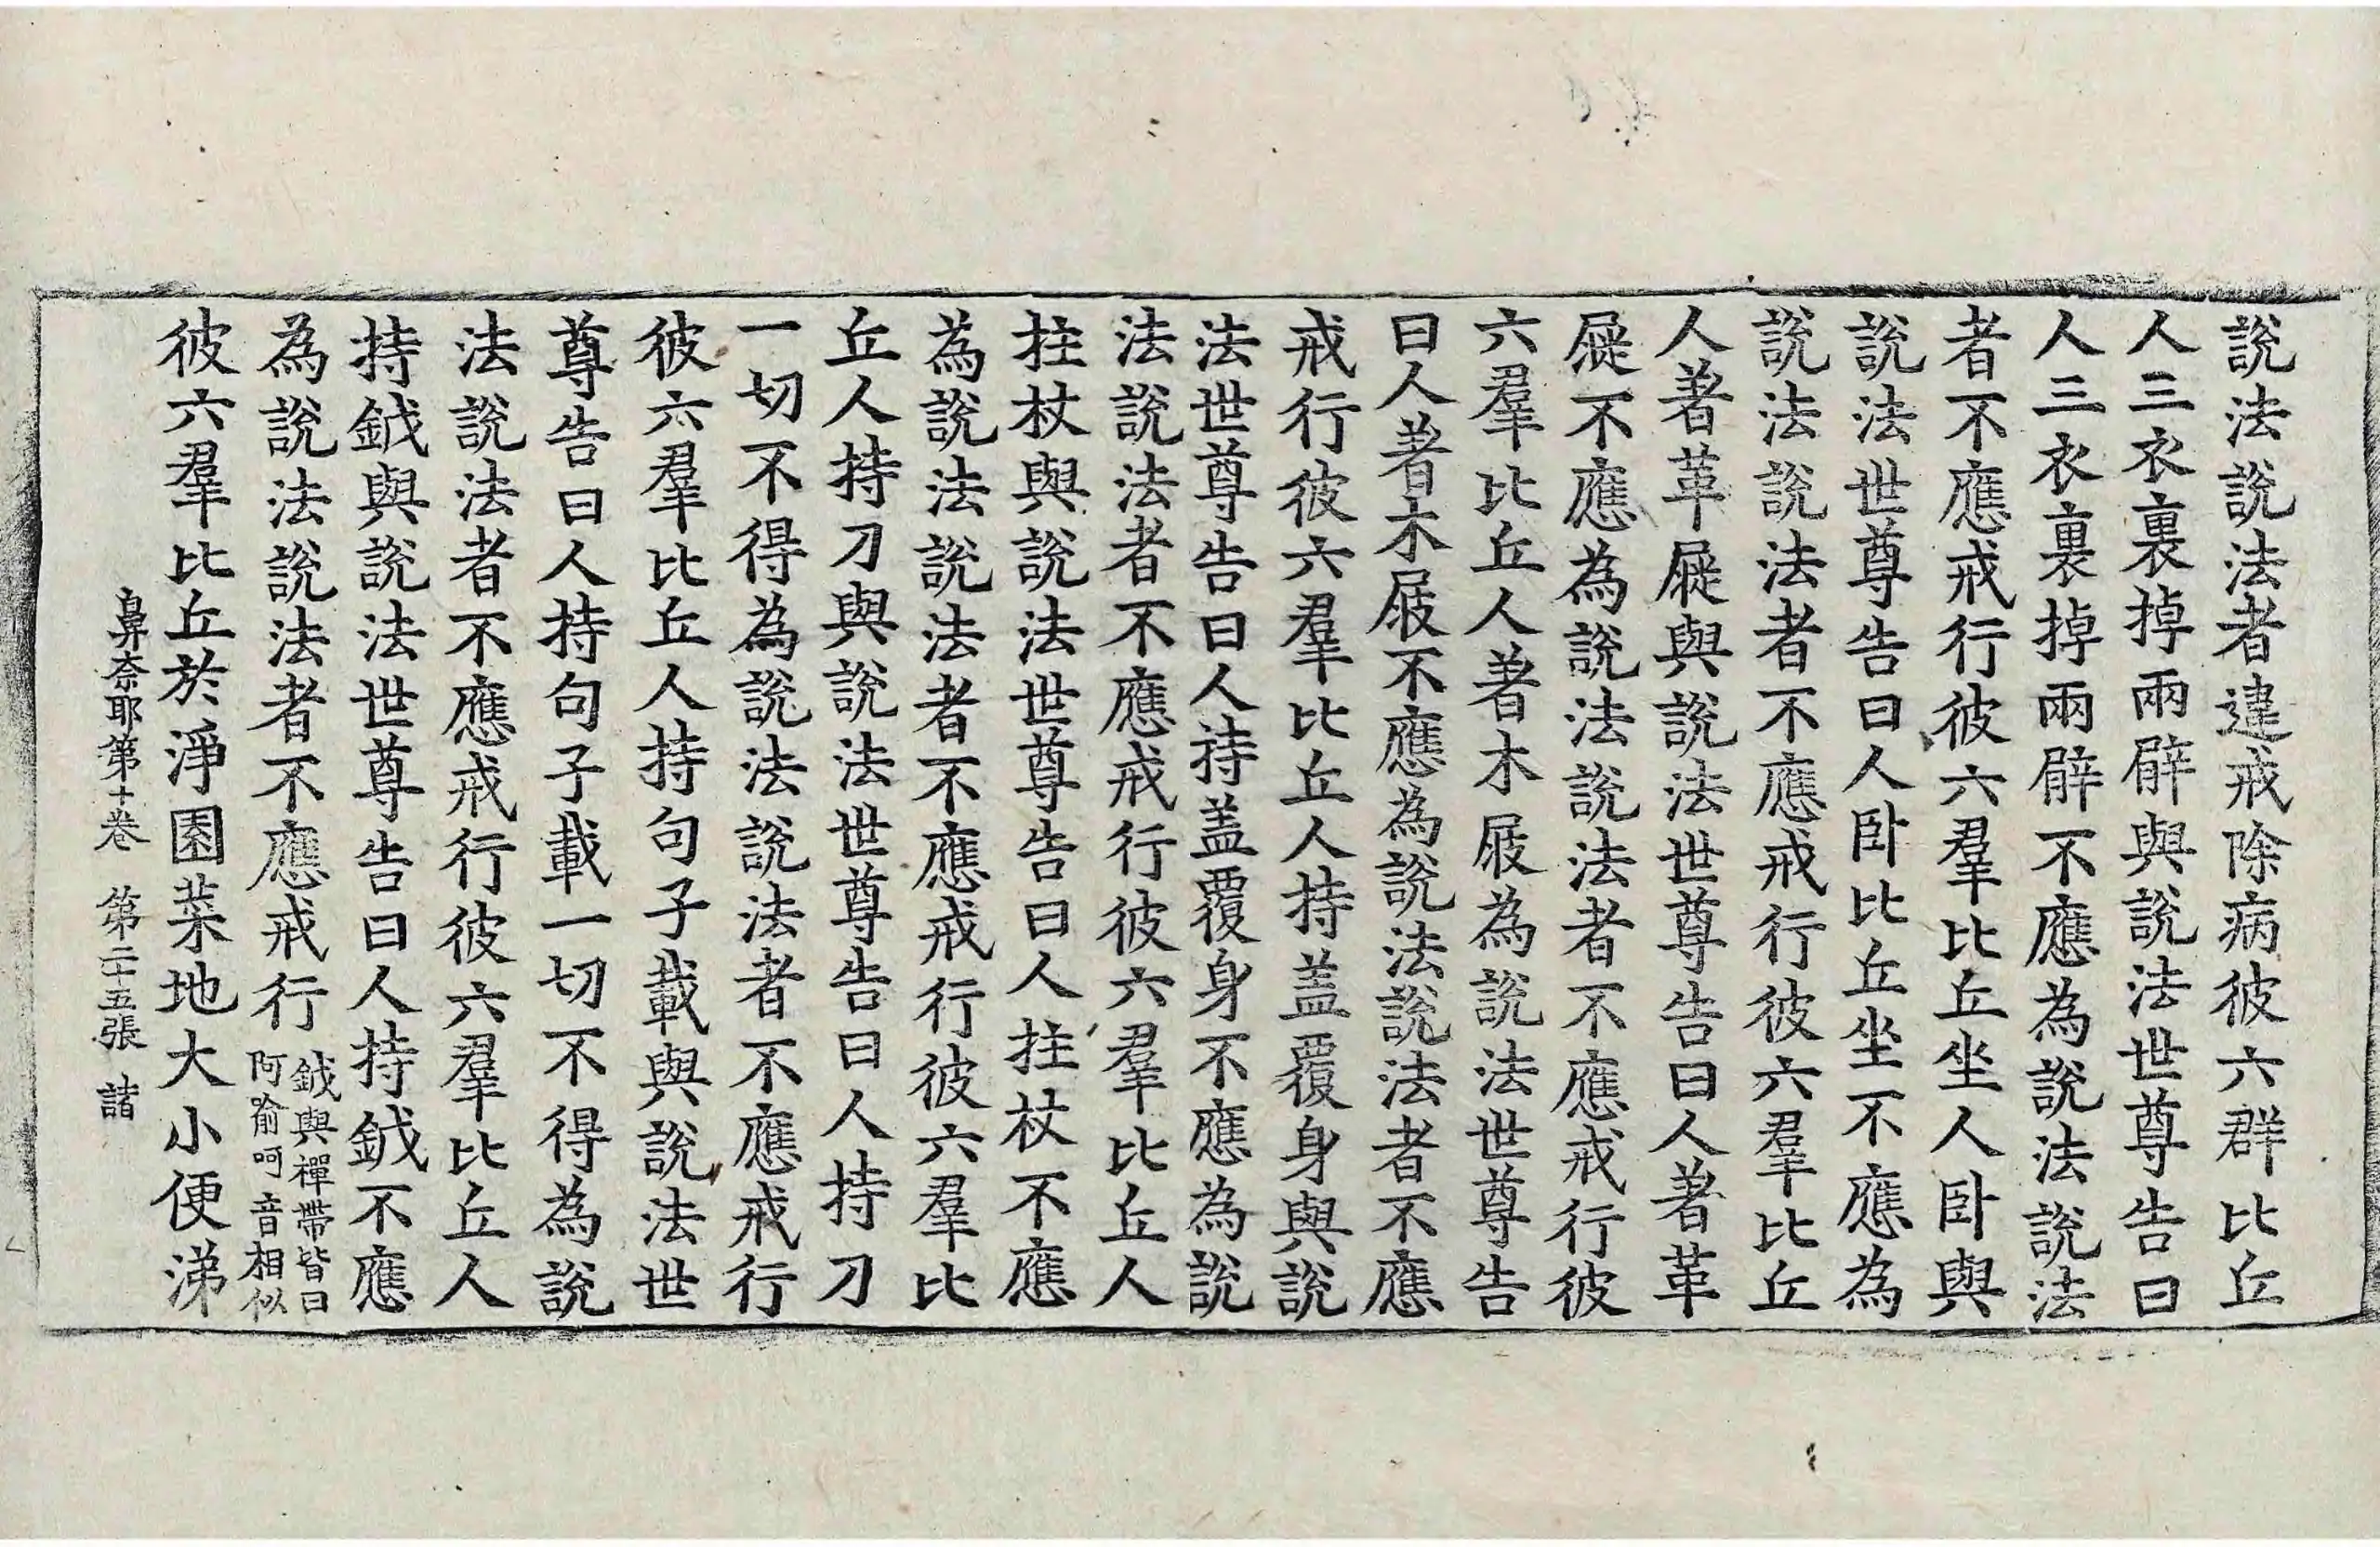 說法說法者違戒除病彼六群比丘
人三衣裏掉兩臂與說法世尊告曰
人三衣裏掉兩臂不應為說法說法
者不應戒行彼六羣比丘坐人臥與
說法世尊告曰人臥比丘坐不應為
說法說法者不應戒行彼六羣比丘
人著革屣與說法世尊告曰人著革
屣不應為說法說法者不應戒行彼
六羣比丘人著木屐為說法世尊告
曰人著木屐不應為說法說法者不應
戒行彼六羣比丘人持盖覆身與說
法世尊告曰人持盖覆身不應為說
法說法者不應戒行彼六羣比丘人
拄杖與說法世尊告曰人拄杖不應
為說法說法者不應戒行彼六羣比
丘人持刀與說法世尊告曰人持刀
一切不得為說法說法者不應戒行
彼六羣比丘人持句子載與說法世
尊告曰人持句子載一切不得為說
法說法者不應戒行彼六羣比丘人
持鉞與說法世尊告曰人持鉞不應
為說法說法者不應戒行鉞與禪帶皆曰阿喻呵音相似
彼六羣比丘於淨園菜地大小便涕
鼻奈耶第十卷 第二十五張 諸